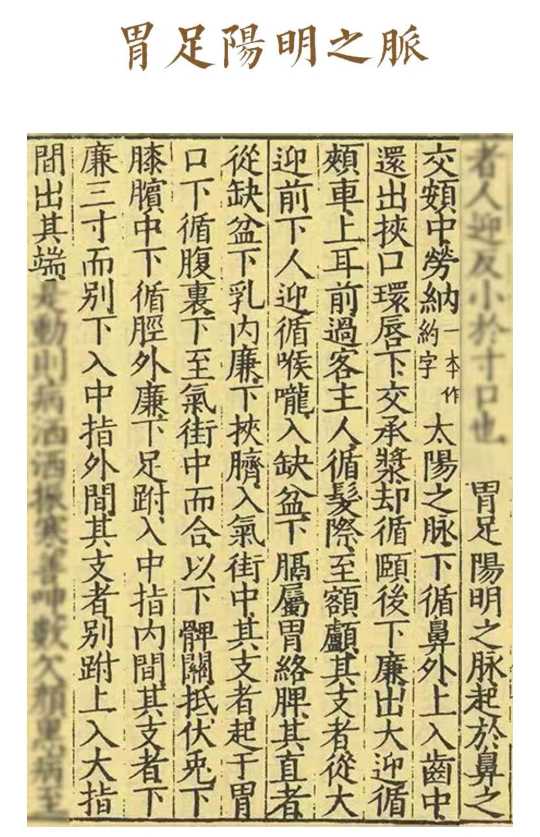 胃足陽明之脈
者人迎反小於寸口也 胃足陽明之脉起於鼻之
交頞中勞納一本作約字太陽之脉下循鼻外上入齒中
還出挾口環唇下交承漿却循頤後下廉出大迎循
頰車上耳前過客主人循髮際至額顱其支者從大
迎前下人迎循喉嚨入缺盆下膈屬胃絡脾其直者
從缺盆下乳內廉下挾臍入氣街中其支者起于胃
口下循腹裏下至氣街中而合以下髀關抵伏兔下
膝臏中下循脛外廉下足跗入中指內間其支者下
廉三寸而別下入中指外間其支者別跗上入大指
間出其端是動則病洒洒振寒善呻數欠顏黑病至